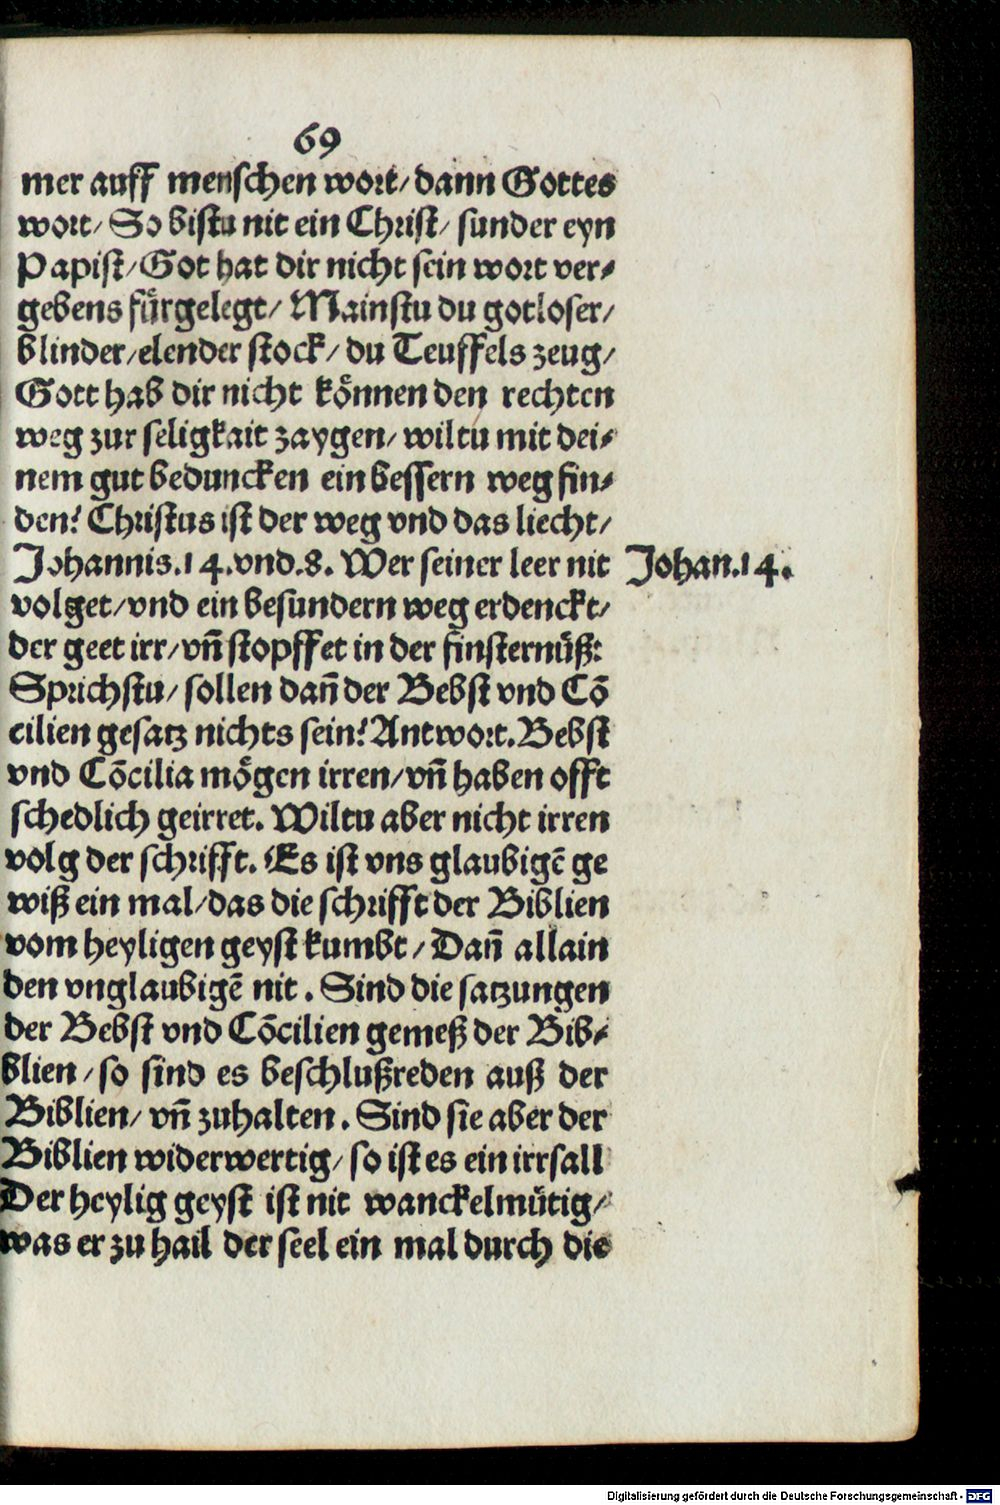 69
mer auff menschen wort/ dann Gottes
wort/ So bistu nit ein Christ/ sunder eyn
Papist/ Got hat dir nicht sein wort ver⸗
gebens fuͤrgelegt/ Mainstu du gotloser/
blinder/ elender stock/ du Teuffels zeug/
Gott hab dir nicht koͤnnen den rechten
weg zur seligkait zaygen/ wiltu mit dei⸗
nem gut beduncken ein bessern weg fin⸗
den? Christus ist der weg vnd das liecht/
Johannis.14.vnd.8. Wer seiner leer nit
Johan.14.
volget/ vnd ein besundern weg erdenckt/
der geet irr/ vn̄ stopffet in der finsternuͤß:
Sprichstu/ sollen dan̄ der Bebst vnd Cō
cilien gesatz nichts sein? Antwort. Bebst
vnd Cōcilia moͤgen irren/ vn̄ haben offt
schedlich geirret. Wiltu aber nicht irren
volg der schrifft. Es ist vns glaubigē ge
wiß ein mal/ das die schrifft der Biblien
vom heyligen geyst kumbt/ Dan̄ allain
den vnglaubigē nit. Sind die satzungen
der Bebst vnd Cōcilien gemeß der Bib⸗
blien/ so sind es beschlußreden auß der
Biblien/ vn̄ zuhalten. Sind sie aber der
Biblien widerwertig/ so ist es ein irrsall
Der heylig geyst ist nit wanckelmuͤtig/
was er zu hail der seel ein mal durch die
Digitalisierung gefördert durch die Deutsche Forschungsgemeinschaft - DFG